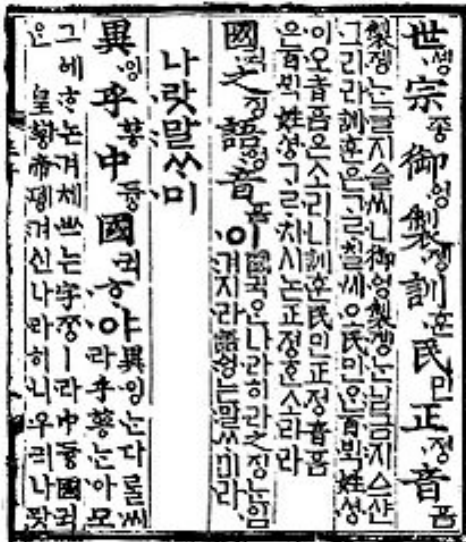 世솅宗종御엉製졩訓훈民민正졍音ᅙᅳᆷ
製졩ᄂᆞᆫ글지ᅀᅳᆯ씨니御엉製졩ᄂᆞᆫ님금지ᅀᅳ샨
그리라訓훈은ᄀᆞᄅᆞ칠씨오民민ᄋᆞᆫ百ᄇᆡᆨ姓셩
이오音ᅙᅳᆷ은소리니訓훈民민正졍音ᅙᅳᆷ
은百ᄇᆡᆨ姓셩ᄀᆞᄅᆞ치시논正졍ᄒᆞᆫ소리라
國귁之징語ᅌᅥᆼ音ᅙᅳᆷ이
國귁ᄋᆞᆫ나라히라之징ᄂᆞᆫ입
겨지라語ᅌᅥᆼ는말ᄊᆞ미라
나랏말ᄊᆞ미
異잉乎ᅘᅩᆼ中듕國귁ᄒᆞ야
異잉ᄂᆞᆫ다ᄅᆞᆯ씨
라乎ᅘᅩᆼᄂᆞᆫ아모
그ᅌᅦᄒᆞ논겨체ᄡᅳ는字ᄍᆞᆼㅣ라中듕國귁
ᄋᆞᆫ皇ᅘᅪᆼ帝뎽겨신나라히니우리나랏